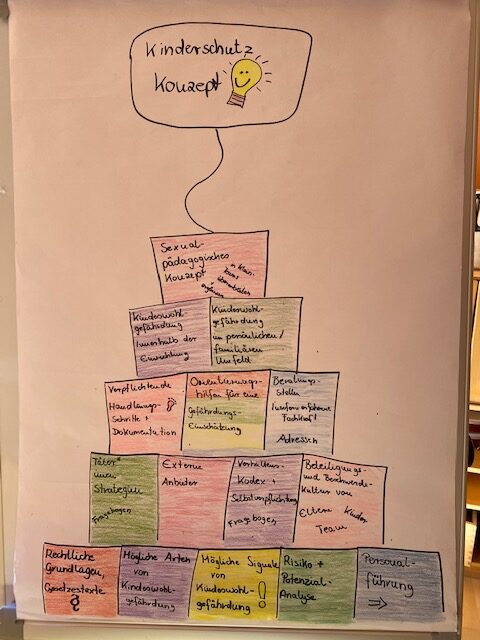 Kinderschutz
Konzept
Sexual-
pädagogisches
Konzept
Kindeswohl
gefährdung
innerhalb der
Einrichtung
Kindeswohl-
gefährdung
im persönlichen/
familiären
Umfeld
Verpflichtende
Handlungs-
Schritte +
Dokumentation
Orientierungs-
hilfen für eine
Gefährdungs-
Einschätzung
Beratungs-
Stellen
Insofern erfahrene
Fachkraft
Adressen
Täter*
innen
Strategien
Fragebogen
Externe
Anbieter
Verhaltens-
Kodex +
Selbstverpflichtung
Fragebogen
Beteiligungs-
und Beschwerde-
Kultur von
Eltern Kinder
Team
Rechtliche
Grundlagen,
Gesetzestexte
§
Mögliche Arten
von
Kindeswohl-
gefährdung
Mögliche Signale
von
Kindeswohl-
gefährdung !
Risiko +
Potenzial-
Analyse
Personal-
führung
⇒